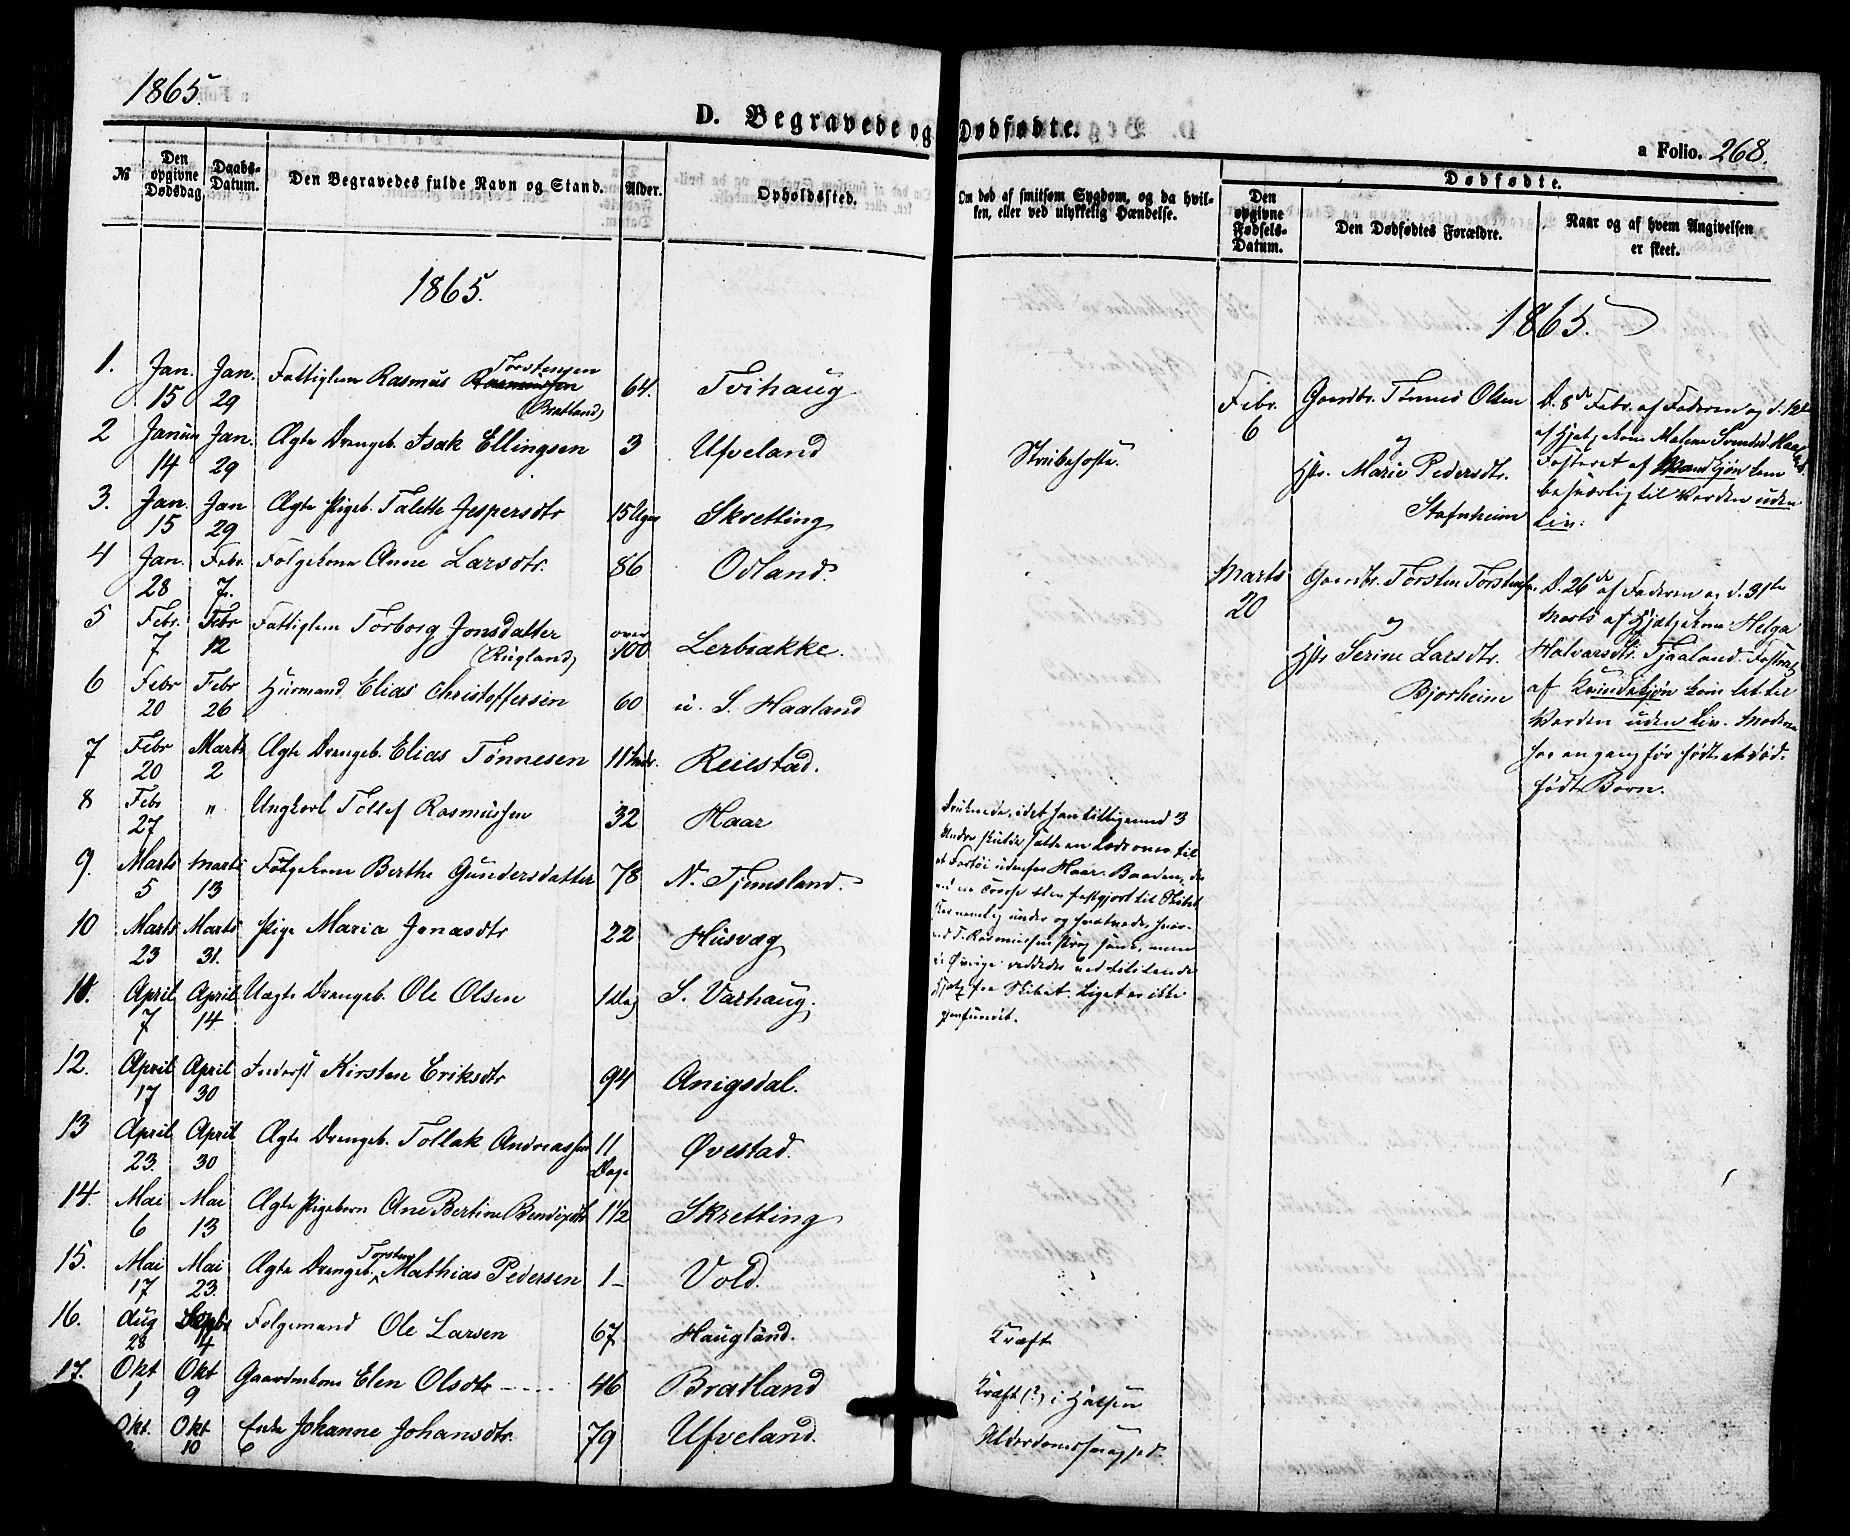 1865.
D. Begravede og Dødfødte.
a Folio. 268.
No
Den opgivne Dødsdag
Daabs-Datum.
Den Begravedes fulde Navn og Stand.
Alder.
Opholdssted.
Om død af smitsom Sygdom, og da hvilken, eller ved ulykkelig Hændelse.
Dødfødte.
Den opgivne Fødsels-Datum.
Den Dødfødtes Forældre.
Naar og af hvem Angivelsen er skeet.
1865.
1865.
1. Jan. 15 Jan. 29 Fattiglem Rasmus Rasmussen Torstensen (Bratland) 64. Tvihaug
2 Januar 14 Jan. 29 Ægte Drengeb. Isak Ellingsen 3 Ufveland Strubehoste.
3. Jan. 15 Jan 29 Ægte Pigeb. Talette Jespersdtr 15 Uger Skretting
4 Jan. 28 Febr. 7. Folgekone Anne Larsdtr. 86 Odland.
5 Febr. 7 Febr 12 Fattiglem Torborg Jonsdatter (Rugland) over 100 Lerbrække.
6 Febr 20 Febr 26 Huusmand Elias Christoffersen 60 u. S. Haaland
7 Febr 20 Marts 2 Ægte Drengeb. Elias Tønnesen 11 Reiestad.
8 Febr 27 " Ungkarl Tollef Rasmussen 32 Haar
Druknede, idet han tilligemed 3
Andre skulde satte en Lods over til
et Fartøi udenfor Haar. Baaden, der
ved en Trosse blev fastgjort til Skibet
kom nemlig under og kantrede, hvor-
ved T. Rasmussen strax sank, mens
de Øvrige reddedes ved tililende
Hjælp fra Skibet. Liget er ikke
gjenfundet.
9. Marts 5 Marts 13 Følgekone Berthe Gundersdatter 78 N. Tjemsland.
10 Marts 23 Marts 31. Pige Maria Jonasdtr 22 Husvæg
11. April 7 April 14 Uægte Drengeb. Ole Olsen 1 Dag S. Varhaug.
12. April 17 April 30 Inderst Kirsten Eriksdtr 94 Anigsdal.
13 April 23. April 30 Ægte Drengeb. Tollak Andreassen 11 Dage Øvestad.
14. Mai 6 Mai 13 Ægte Pigebarn Ane Bertine Bendixdtr 1 1/2 Skretting
15. Mai 17 Mai 23. Ægte Drengeb. Torsten Mathias Pedersen 1- Vold.
16. Aug 28 Septbr 4 Folgemand Ole Larsen 67 Haugland. Kræft
17. Okt 1 Okt 9 Gaardmkone Elen Olsdtr 46 Bratland Kræft (?) i Halsen
Okt. Okt 10 Enke Johanne Johansdtr. 79 Ufveland. Alderdomssvaghed.
Febr. 6
Gaardbr. Tønnes Olsen
og
Hstr. Marie Pedersdtr.
Stafnheim
D. 8de Febr. af Faderen og d. 12te
af Hjælpekone Malene Svendsd. Haar
Fosteret af Mandkjøn kom
besværlig til Verden uden
Liv.
Marts 20
Gaardbr. Torsten Torstensen
og
Hstr Serine Larsdtr.
Bjorheim
D. 26de af Faderen og d. 31te
Marts af Hjælpekone Helga
Halvarsdtr. Tjaaland. Fostret
af Kvindekjøn kom let til
Verden uden Liv. Moderen
har en gang før født et død-
født Barn.